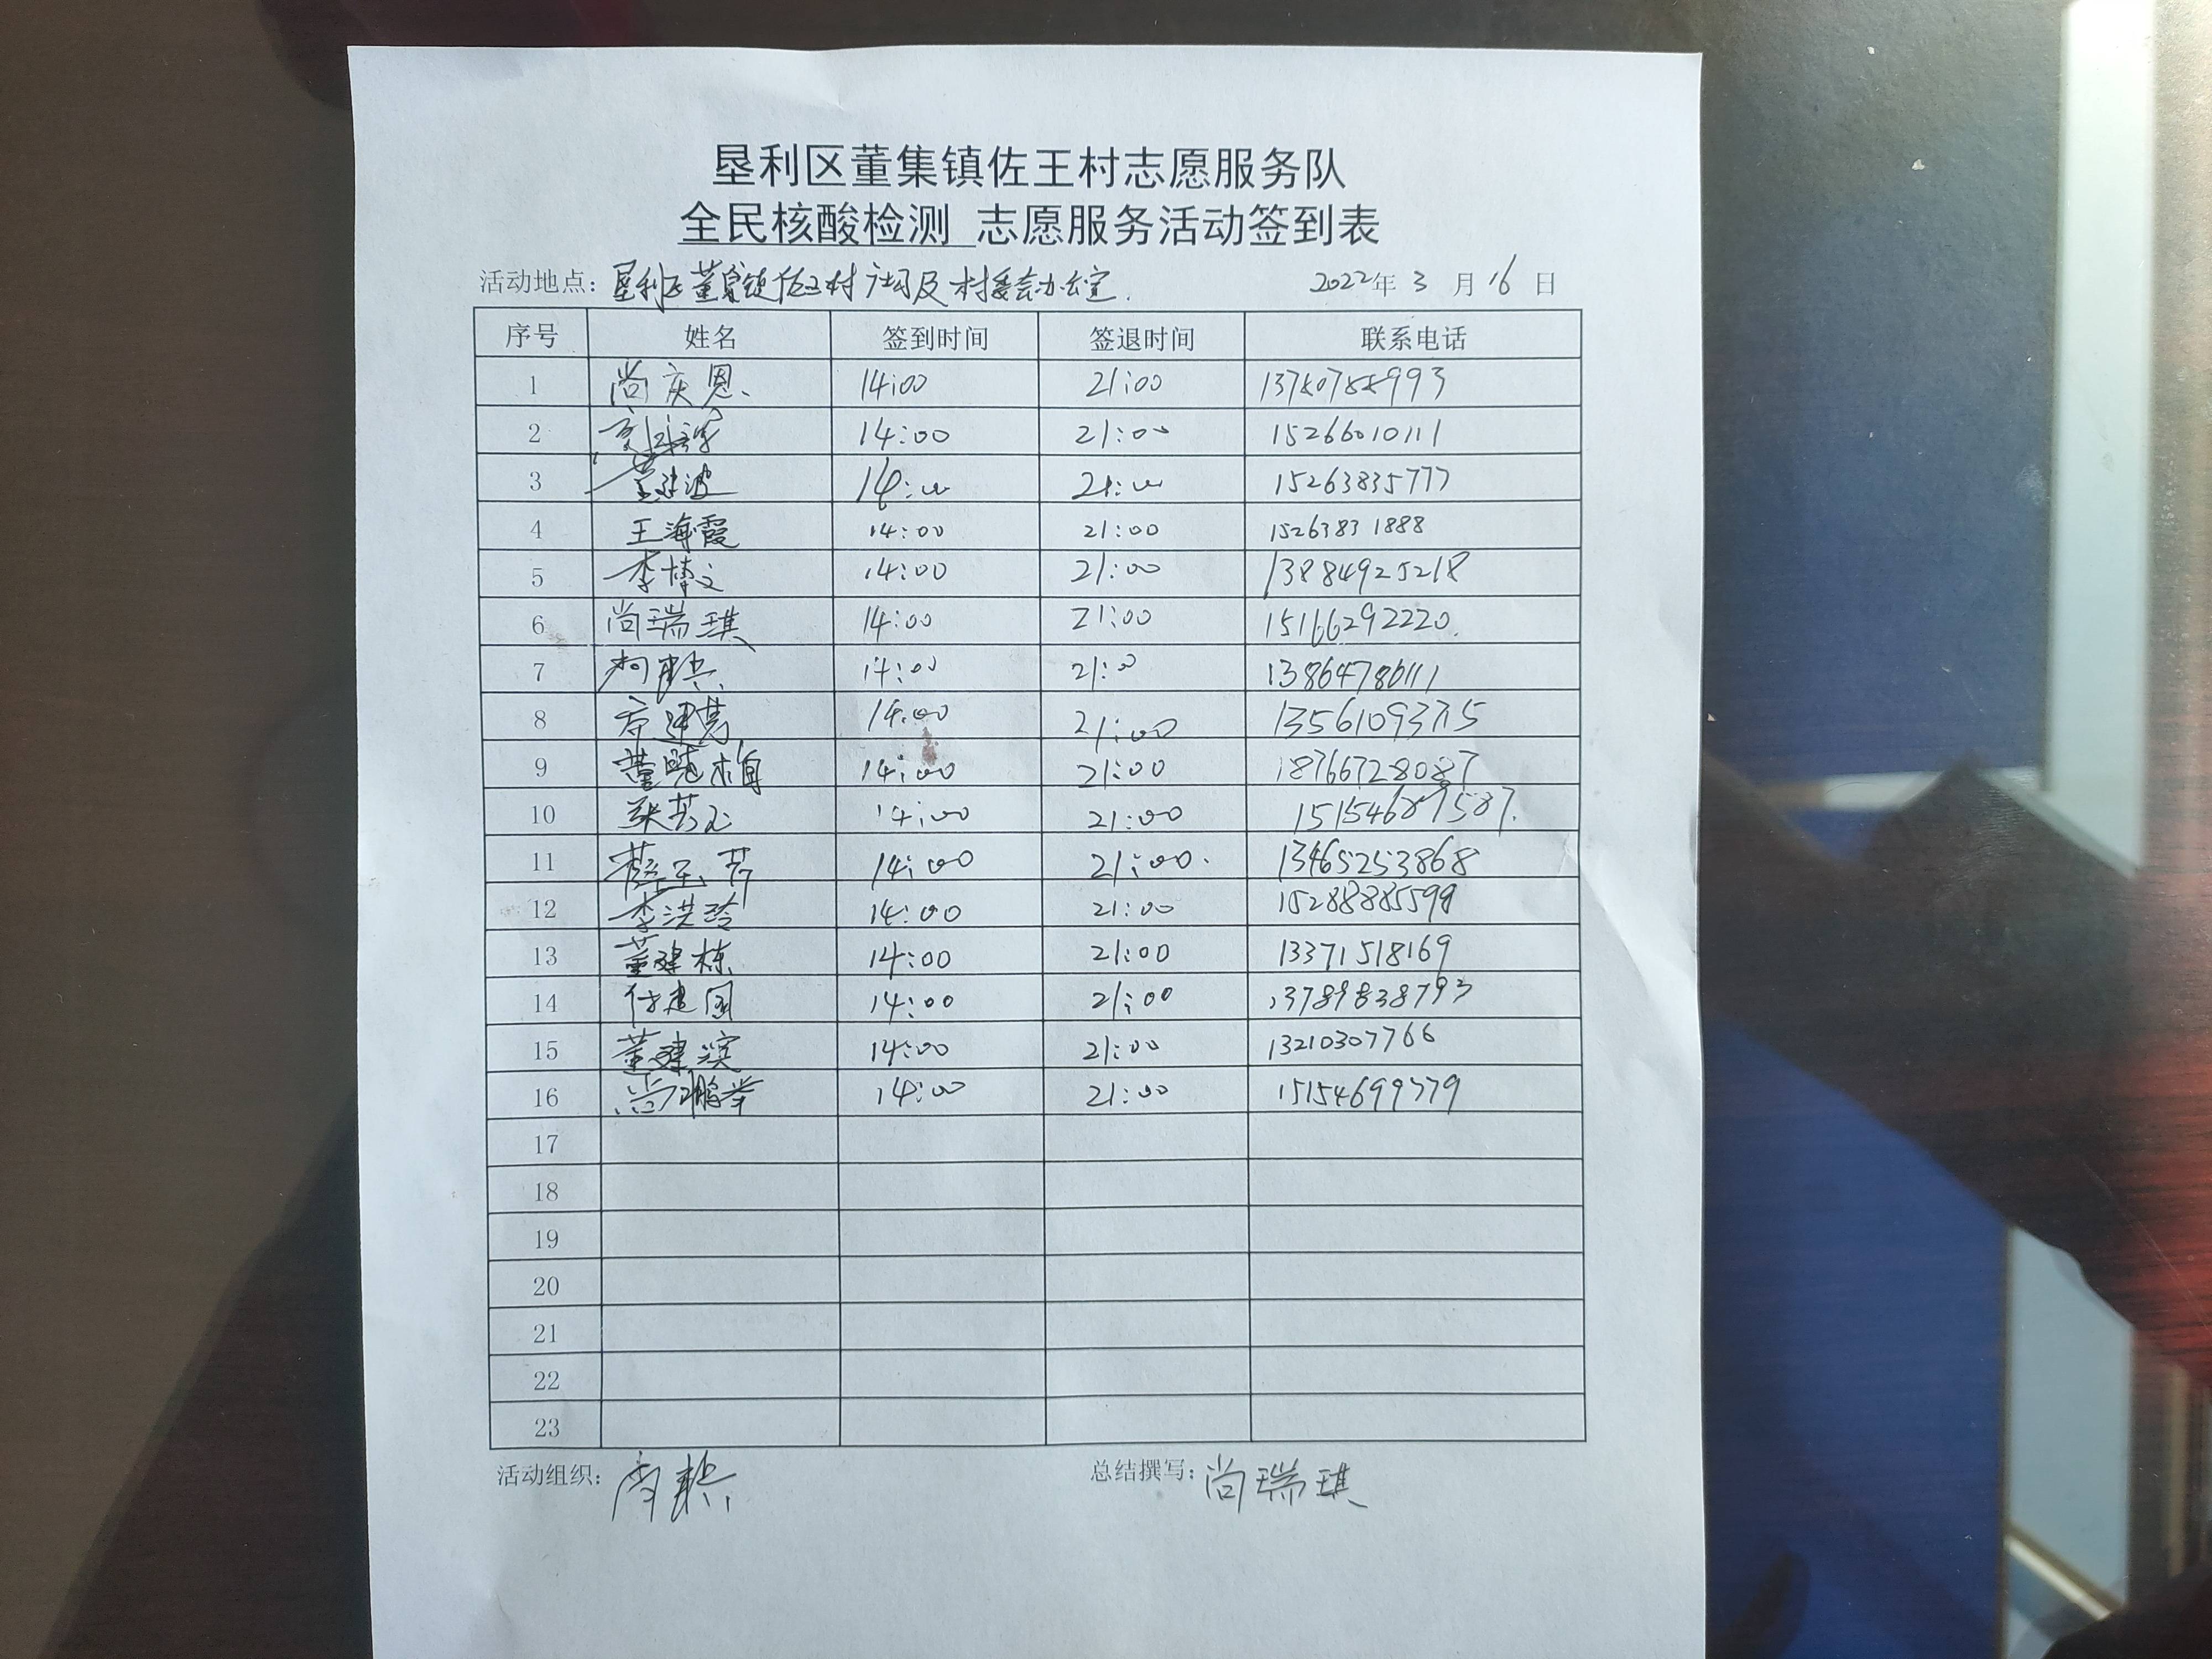 垦利区董集镇佐王村志愿服务队
全民核酸检测 志愿服务活动签到表
活动地点：垦利区董集镇佐王村 及村委会办公室. 2022年 3 月 16 日
序号 姓名 签到时间 签退时间 联系电话
1 尚庆恩 14:00 21:00
2 14:00 21:00 15266010111
3 14:00 21:00 15263835777
4 王海霞 14:00 21:00 15263831888
5 李博文 14:00 21:00 13884925218
6 尚瑞琪 14:00 21:00 15166292220.
7 14:00 21:00 13864786111
8 14:00 21:00
9 董晓梅 14:00 21:00 18766728087
10 张芳 14:00 21:00 15154687587.
11 14:00 21:00 13465253868
12 李洪玲 14:00 21:00
13 董建栋 14:00 21:00 13371518169
14 任建国 14:00 21:00 13789838793
15 董建滨 14:00 21:00 13210307766
16 尚鹏举 14:00 21:00 15154699379
17
18
19
20
21
22
23
活动组织： 总结撰写：尚瑞琪